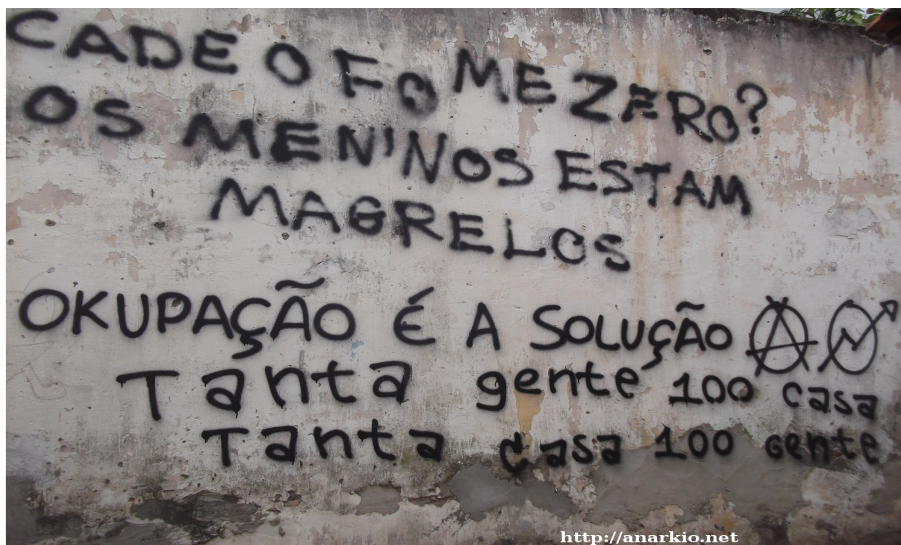 CADE O FOME ZERO?
OS MENINOS ESTAM
MAGRELOS
OKUPAÇÃO É A SOLUÇÃO
Tanta gente 100 casa
Tanta casa 100 gente
http://anarkio.net